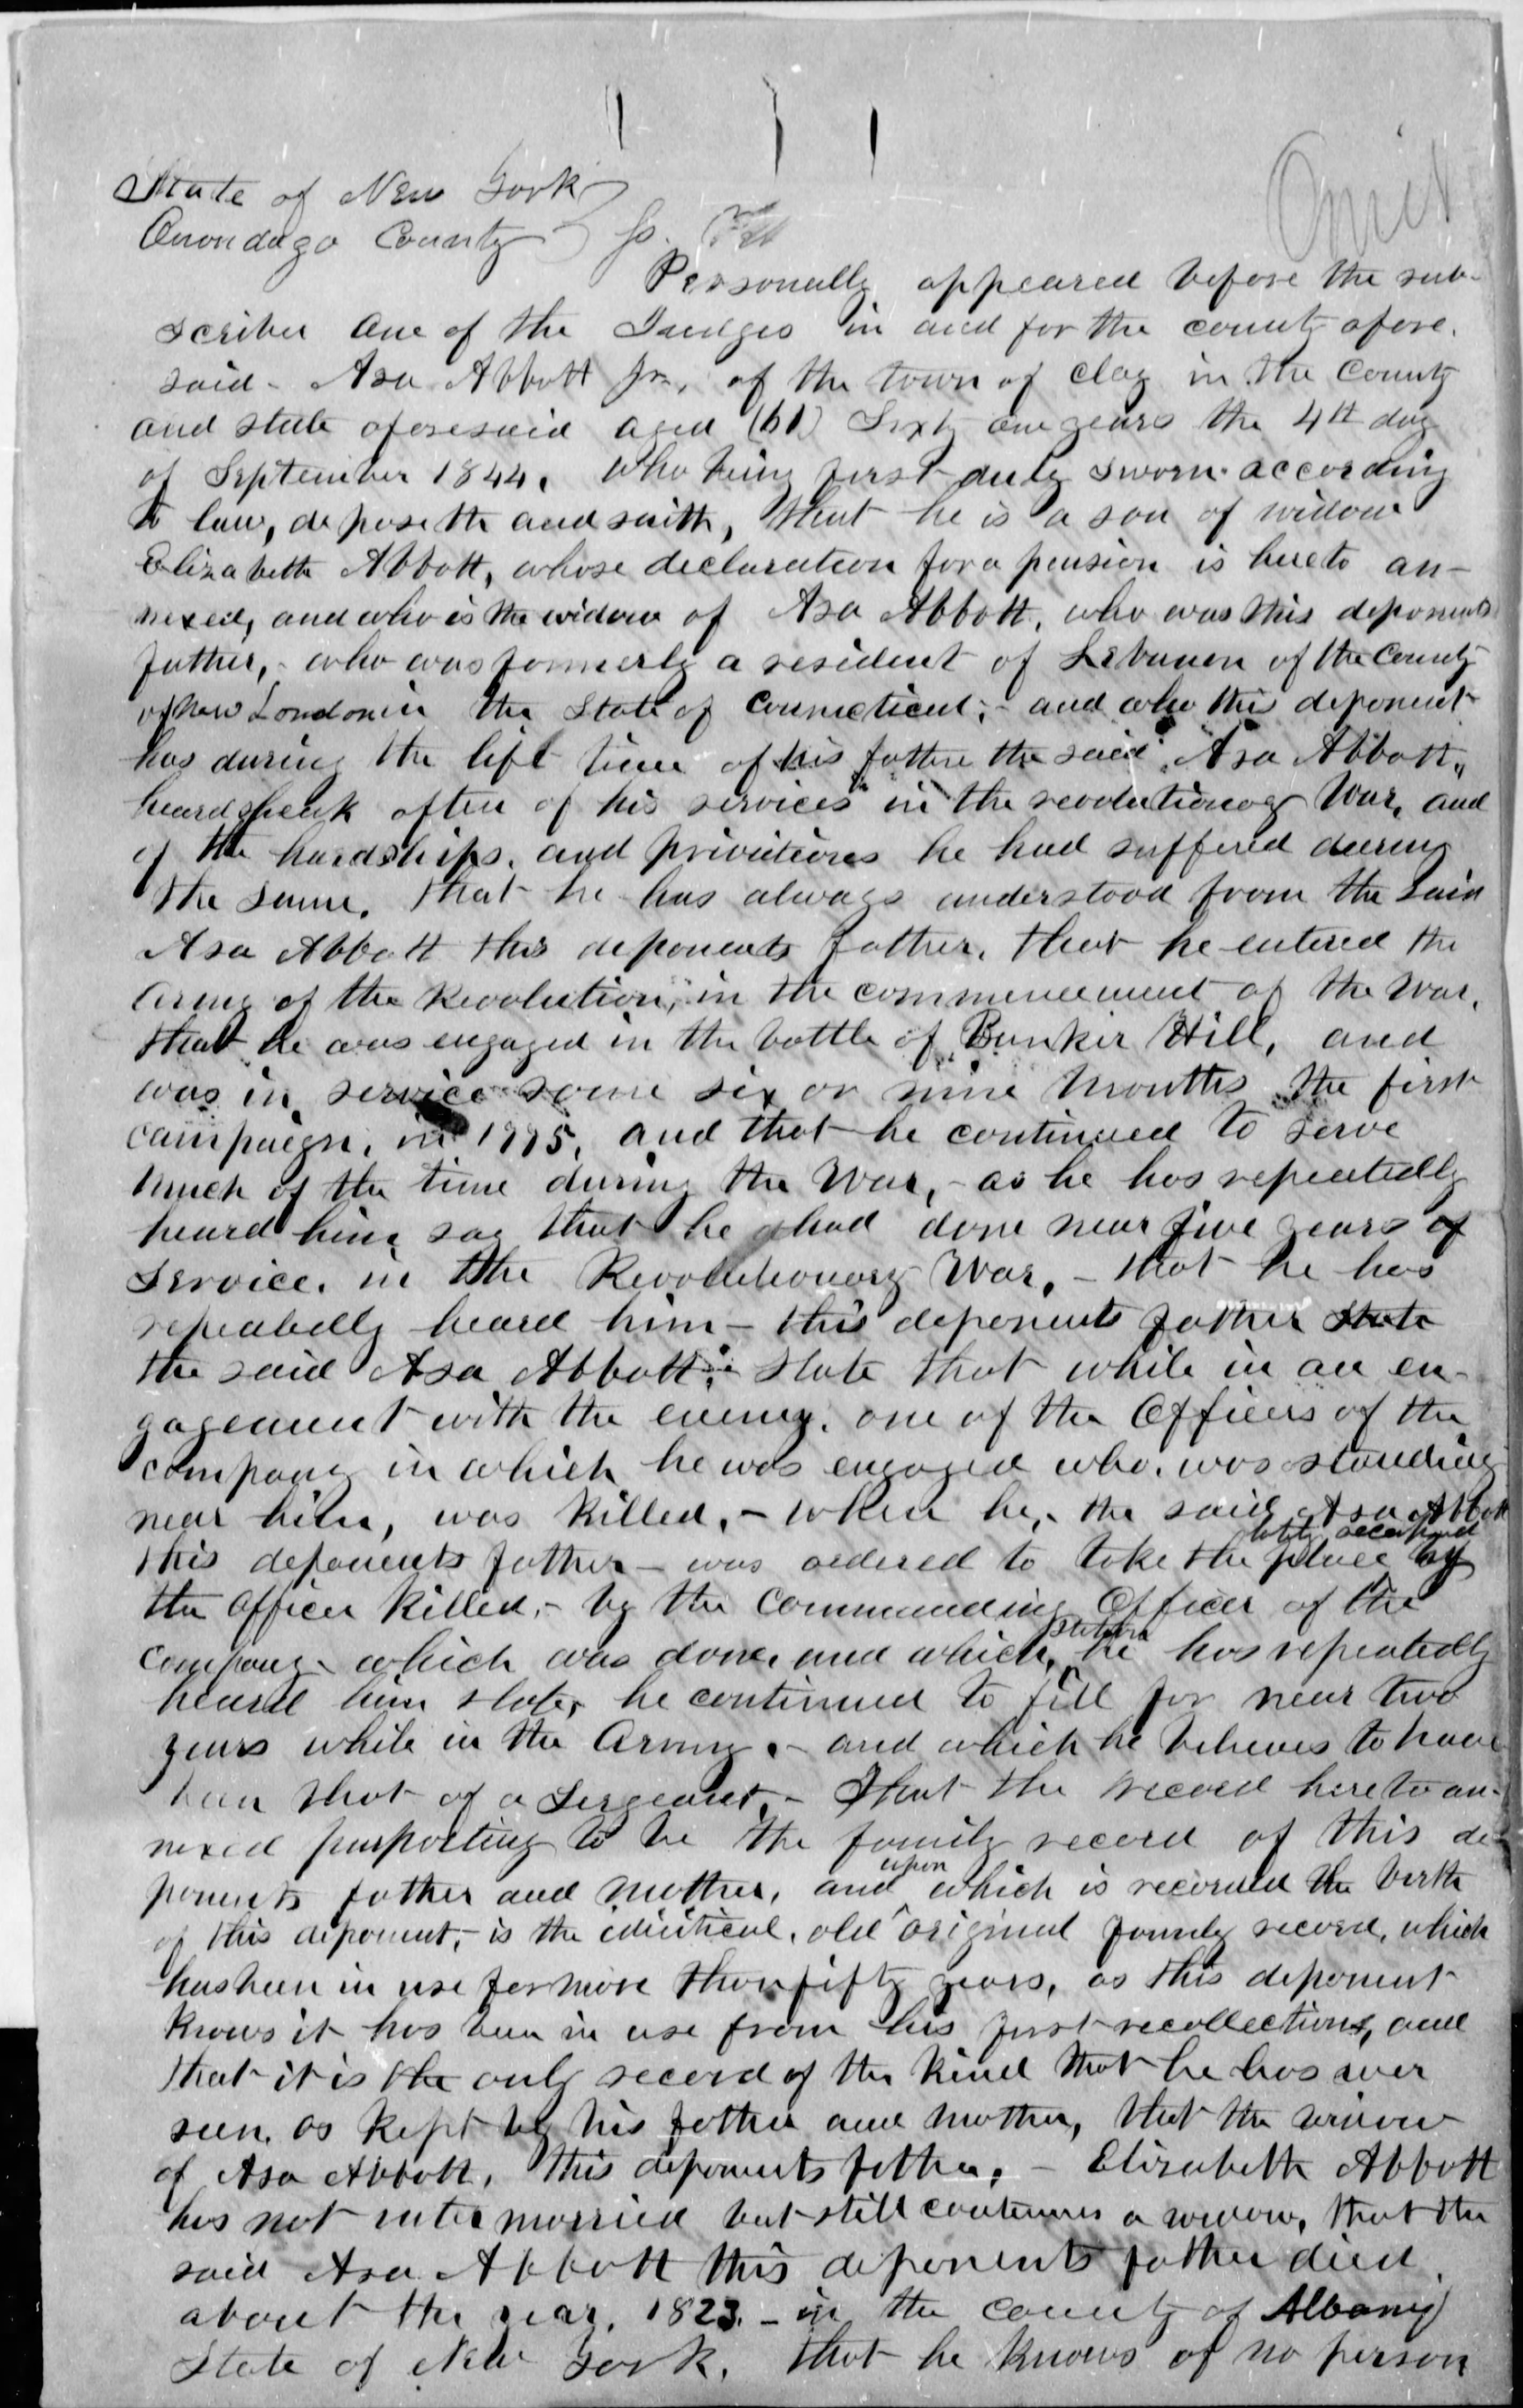 Omit
State of New York
Onondaga County } ss.
Personally appeared before the sub-
scriber One of the Judges in and for the county afore.
said - Asa Abbott Jr. of the town of Clay in the County
and state aforesaid aged (61) Sixty one years the 4th day
of September 1844. Who being first duly sworn according
to law, deposeth and saith, that he is a son of widow
Elizabeth Abbott, whose declaration for a pension is hereto an-
nexed, and who is the widow of Asa Abbott, who was this deponents
father, - who was formerly a resident of Lebanon of the County
of New London in the State of Connecticut; - and who this deponent
has during the life time of his father the said Asa Abbott,
heard speak often of his services in the revolutionary War, and
of the hardships, and privations he had suffered during
the same. that he has always understood from the said
Asa Abbott this deponents father, that he entered the
Army of the Revolution, in the commencement of the War,
that he was engaged in the battle of Bunker Hill, and
was in service some six or nine months the first
campaign, in 1775, and that he continued to serve
much of the time during the War, - as he has repeatedly
heard him say that he had done near five years of
service, in the Revolutionary War, - that he has
repeatedly heard him - this deponents father state
the said Asa Abbott; state that while in an en-
gagement with the enemy, one of the Officers of the
company in which he was engaged who, was standing
near him, was killed, - when he, the said Asa Abbott
this deponents father - was ordered to take the place lately occupied by
the officer killed, - by the Commanding Officer of the
company - which was done, and which station he has repeatedly
heard him state, he continued to fill for near two
years while in the Army, - and which he believes to have
been that of a Sergeant, - That the record hereto an-
nexed purporting to be the family record of this de-
ponents father and mother, and upon which is recorded the birth
of this deponent, - is the identical, old original family record, which
has been in use for more than fifty years, as this deponent
knows it has been in use from his first recollections, and
that it is the only record of the kind that he has ever
seen, as kept by his father and mother, that the widow
of Asa Abbott, this deponents father, - Elizabeth Abbott
has not intermarried but still continues a widow, that the
said Asa Abbott this deponents father died
about the year, 1823. - in the county of Albany
State of New York. that he knows of no person